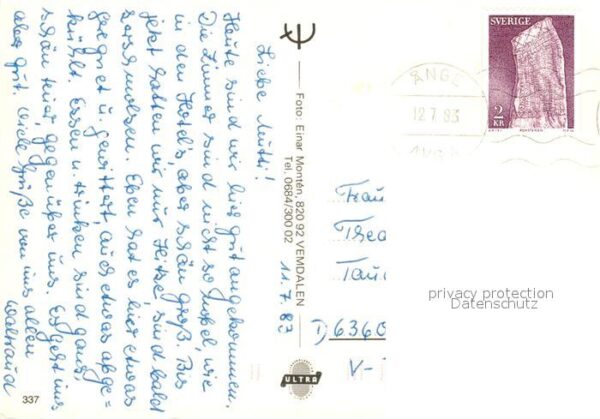 Liebe Mutti!
11.7.83
Heute sind wir hier gut angekommen.
Die Zimmer sind nicht so nobel, wie
in den Hotels, aber schön groß. Bis
jetzt hatten wir nur Hitze, sind bald
zerschmolzen. Eben hat es hier etwas
geregnet u. gewittert, auch etwas abge=
kühlt. Essen u. trinken sind ganz
schön teuer, gegenüber uns. Es geht uns
aber gut. Viele Grüße von uns allen
Waltraud
337
Foto: Einar Montén, 820 92 VEMDALEN
Tel. 0684/300 02
ULTRA
SVERIGE
2
KR
RÖKSTENEN
ÅNGE
12.7.83
Frau
Thea
Tau
D 6360
V-
privacy protection
Datenschutz